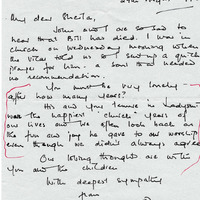 My dear Sheila,
John and I are so sad to
hear that Bill has died. I was in
church on Wednesday morning when
the vicar told us so I sent up a quick
prayer for him - a soul that needed
no recommendation.
You must be very lonely -
after how many years?
His and your tenure in
were the happiest church years of
our lives and we often look back on
the fun and joy he gave to our worship
even though we didn't always agree
Our loving thoughts are with
you and the children
With deepest sympathy
from